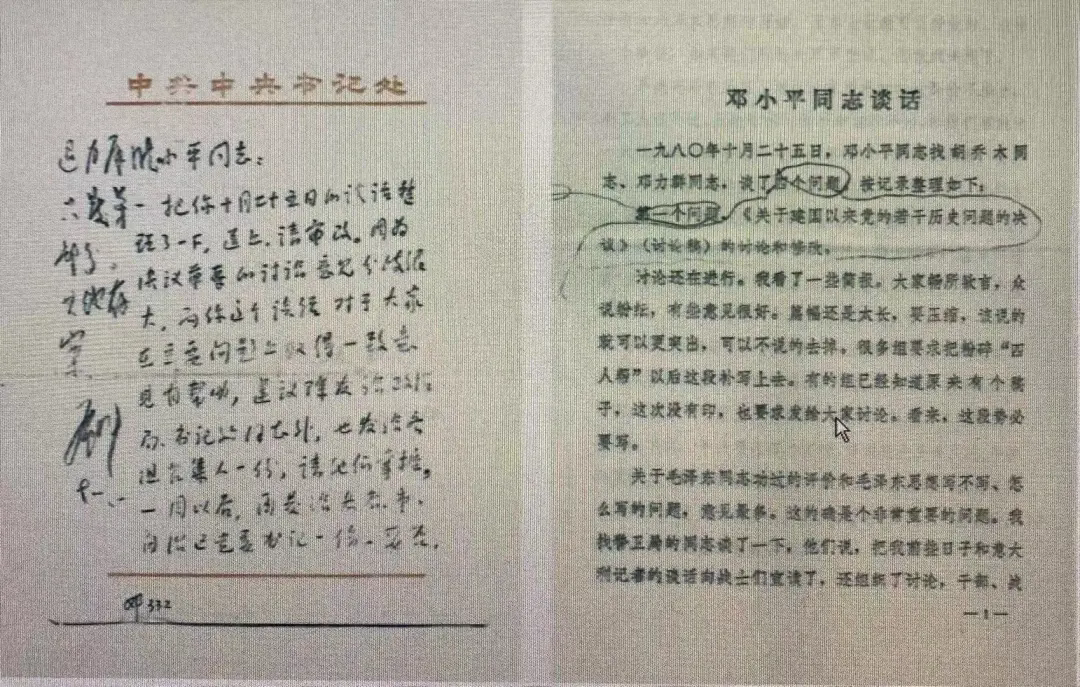 中共中央书记处
小平同志：
把你十月二十五日的谈话整
理了一下，送上，请审改。因为
决议草案的讨论意见分歧很
大，而你这个谈话对于大家
在主要问题上取得一致意
见有帮助，建议印发给政治
局、书记处同志外，也发给各
组召集人一份，请他们掌握。
一周以后，再发给各省、市、
书记一份。妥否，
十一、一
332
邓小平同志谈话
一九八〇年十月二十五日，邓小平同志找胡乔木同
志、邓力群同志，谈了四个问题，按记录整理如下：
第一个问题，《关于建国以来党的若干历史问题的决
议》（讨论稿）的讨论和修改。
讨论还在进行。我看了一些简报。大家畅所欲言，众
说纷纭，有些意见很好。篇幅还是太长，要压缩，该说的
就可以更突出，可以不说的去掉。很多组要求把粉碎“四
人帮”以后这段补写上去。有的组已经知道原来有个稿
子，这次没有印，也要求发给大家讨论。看来，这段势必
要写。
关于毛泽东同志功过的评价和毛泽东思想写不写、怎
么写的问题，意见最多。这的确是个非常重要的问题。我
找警卫局的同志谈了一下，他们说，把我前些日子和意大
利记者的谈话向战士们宣读了，还组织了讨论，干部、战
—1—